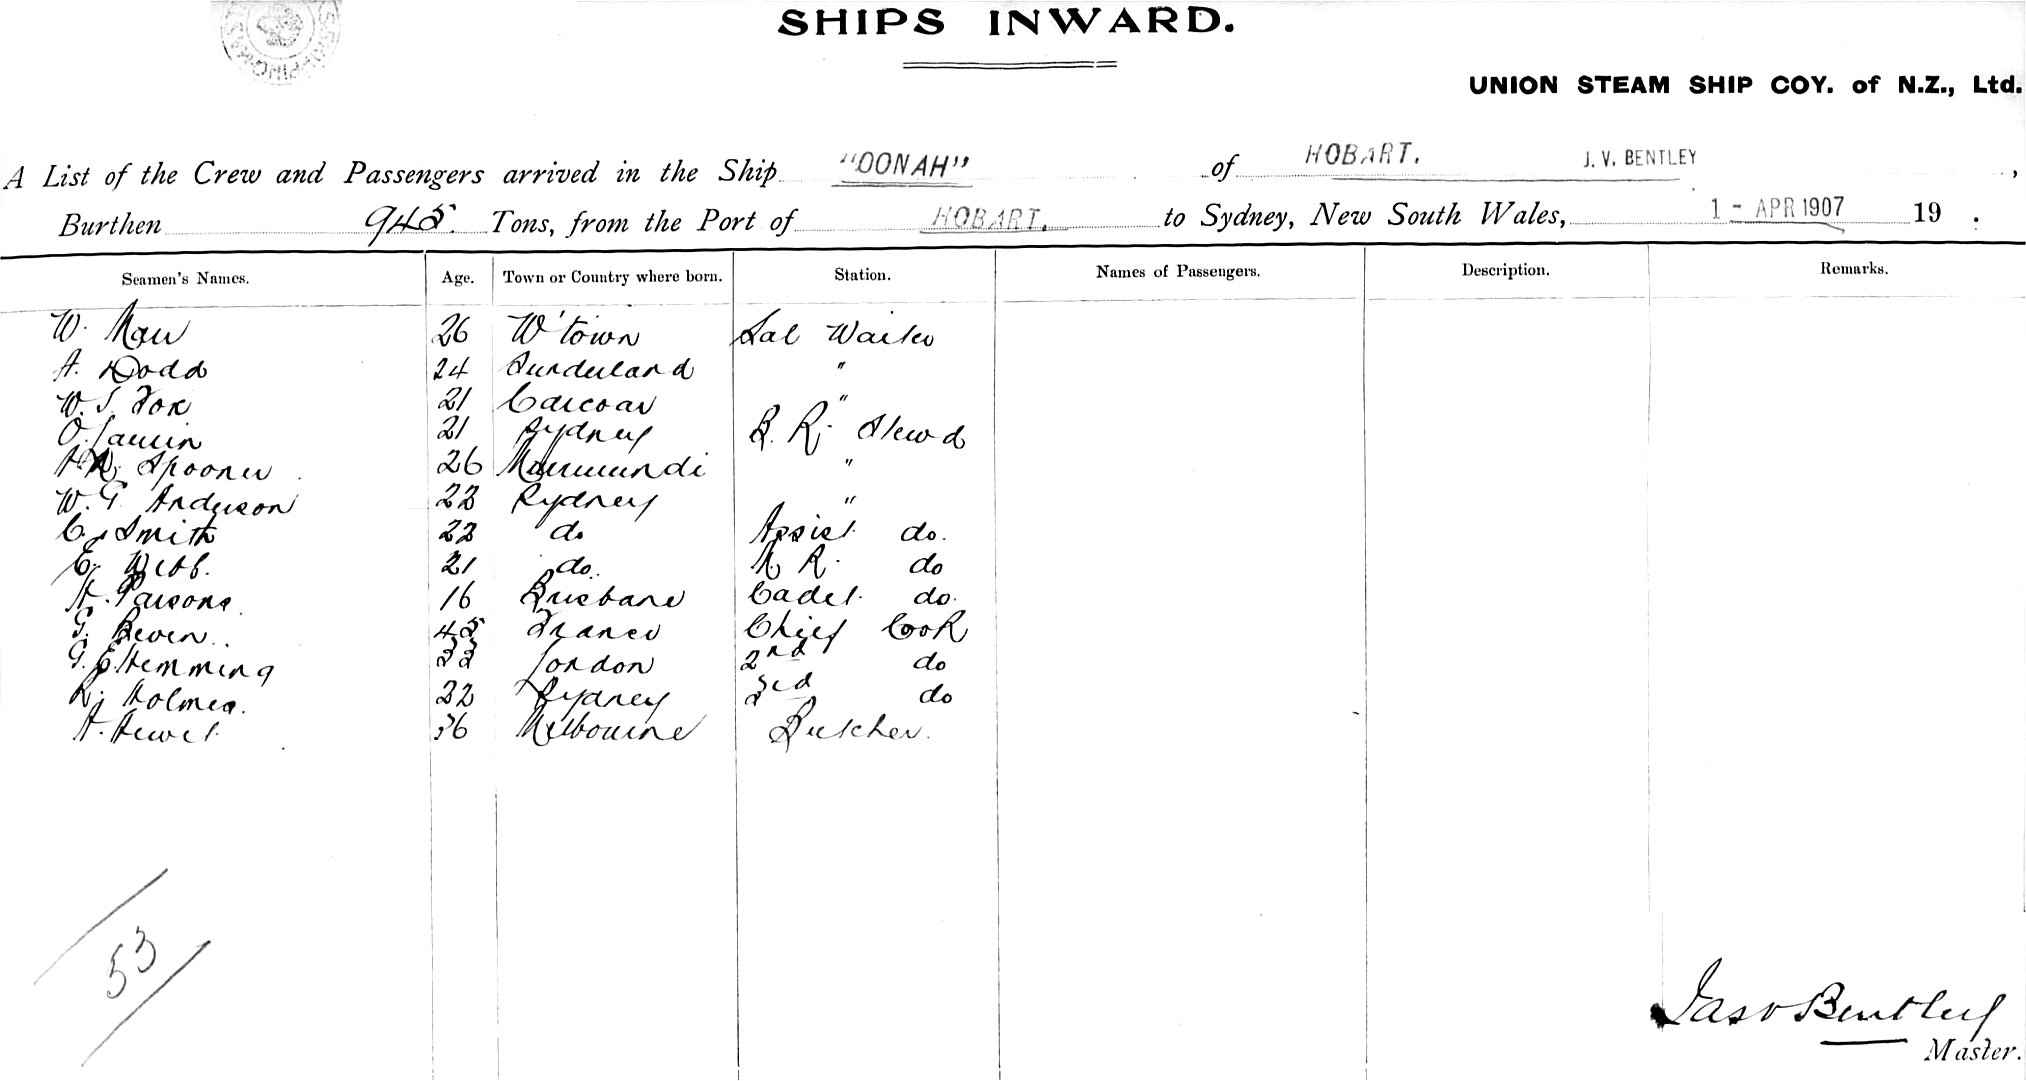 SHIPS INWARD.
UNION STEAM SHIP COY. of N.Z., Ltd.
A List of the Crew and Passengers arrived in the Ship "OONAH" of HOBART. J. V. BENTLEY,
Burthen 945. Tons, from the Port of HOBART. to Sydney, New South Wales, 1 - APR 1907 19 .
Seamen's Names. Age. Town or Country where born. Station. Names of Passengers. Description. Remarks.
W. 26 W'town Sal Waiter
A. Dodd 24 Sunderland "
W. S. Fox 21 Carcoar "
O. 21 Sydney B. R. Stewd
Spooner 26 Murrurundi "
W. G. Anderson 22 Sydney "
C. Smith 22 do Assist. do.
E. Webb. 21 do. do
H. Parsons. 16 Brisbane Cadet. do.
G. Beven. 45 France Chief Cook
G. E. Hemming 33 London 2nd do
Holmes. 22 Sydney 3rd do
A. Hewet. 36 Melbourne Butcher.
53
Jas V Bentley
Master.